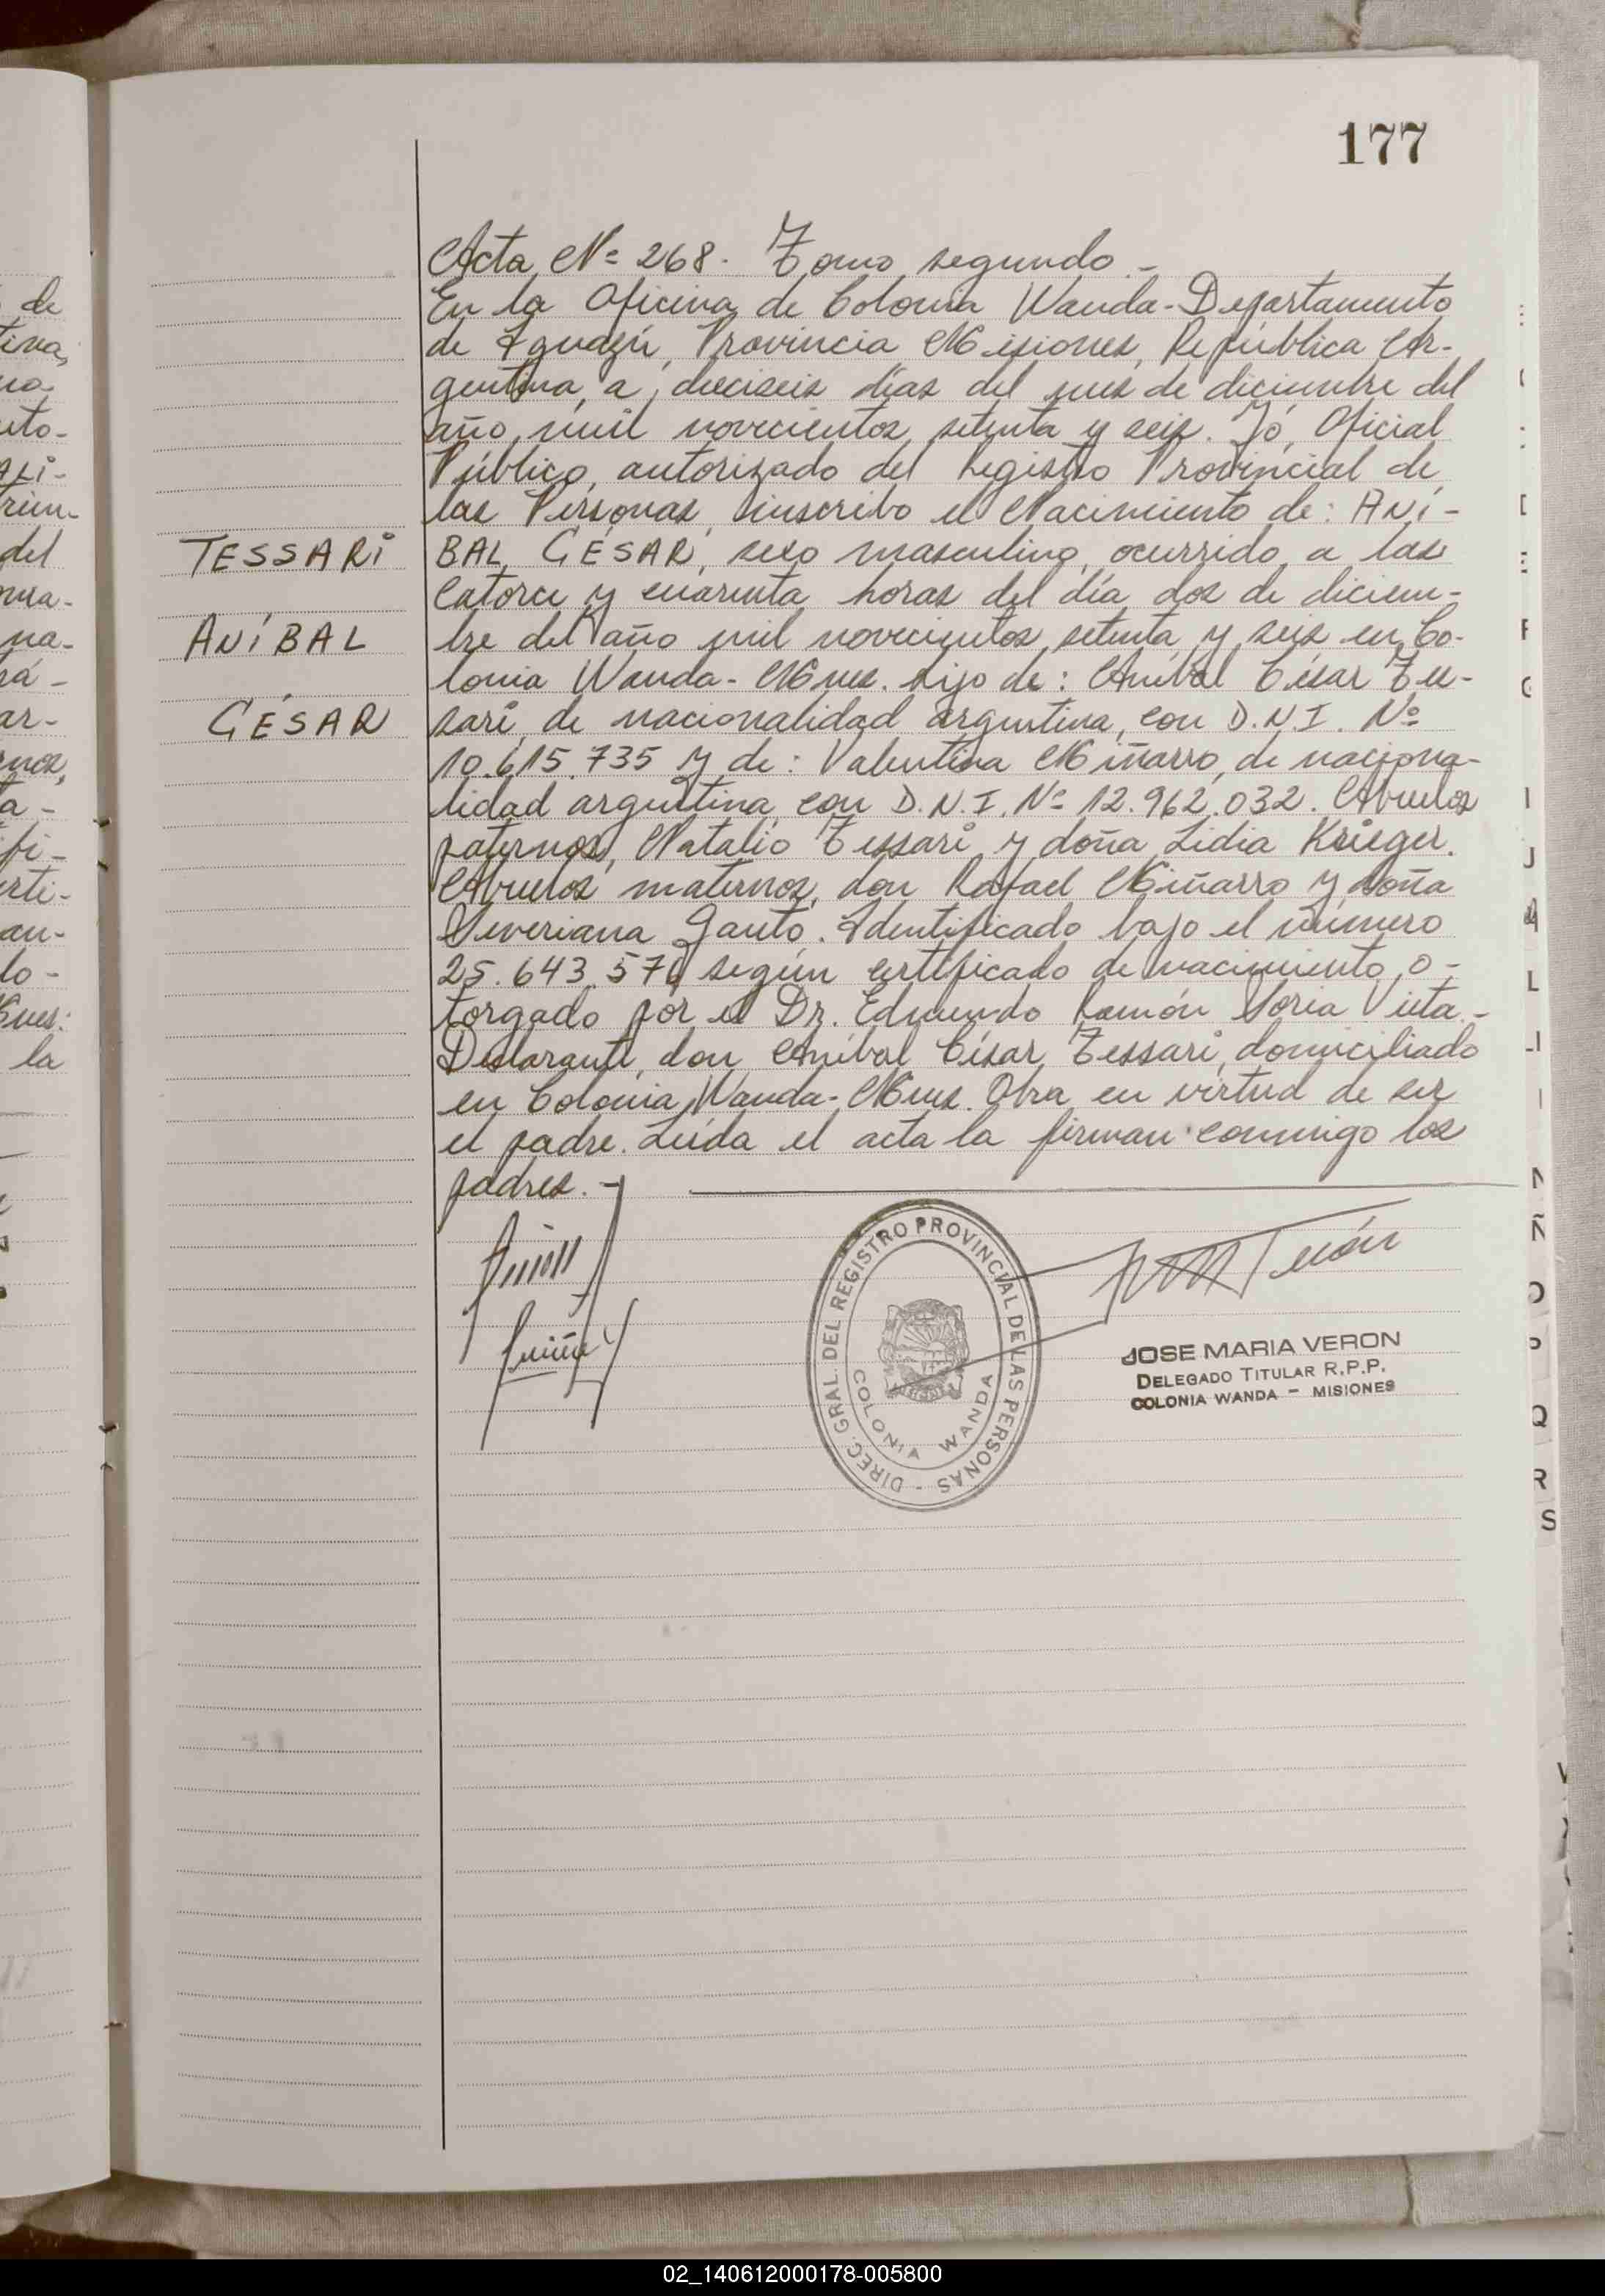 177
Acta Nº 268. Tomo segundo.-
En la Oficina de Colonia Wanda-Departamento
de Iguazú, Provincia Misiones, República Ar-
gentina, a dieciseis días del mes de diciembre del
año mil novecientos setenta y seis. Yó, Oficial
Público, autorizado del Registro Provincial de
las Personas, inscribo el Nacimiento de: ANí-
TESSARi
BAL CÉSAR, sexo masculino, ocurrido a las
catorce y cuarenta horas del día dos de diciem-
ANíBAL
bre del año mil novecientos setenta y seis en Co-
lonia Wanda- Mnes. hijo de: Aníbal César Tes-
CÉSAR
sari, de nacionalidad argentina, con D.N.I. Nº
10.615.735 y de: Valentina Miñarro, de naciona-
lidad argentina, con D.N.I. Nº 12.962.032. Abuelos
paternos, Natalio Tessari y doña Lidia Krieger.
Abuelos maternos, don Rafael Miñarro y doña
Severiana Gauto. Identificado bajo el número
25.643.576 según certificado de nacimiento o-
torgado por el Dr. Edmundo Ramón Soria Vieta.-
Declarante, don Aníbal César Tessari, domiciliado
en Colonia Wanda- Mnes. Obra en virtud de ser
el padre. Leída el acta la firman conmigo los
padres.-
DIREC. GRAL. DEL REGISTRO PROVINCIAL DE LAS PERSONAS -
COLONIA WANDA
JOSE MARIA VERON
DELEGADO TITULAR R.P.P.
COLONIA WANDA - MISIONES
02_140612000178-005800